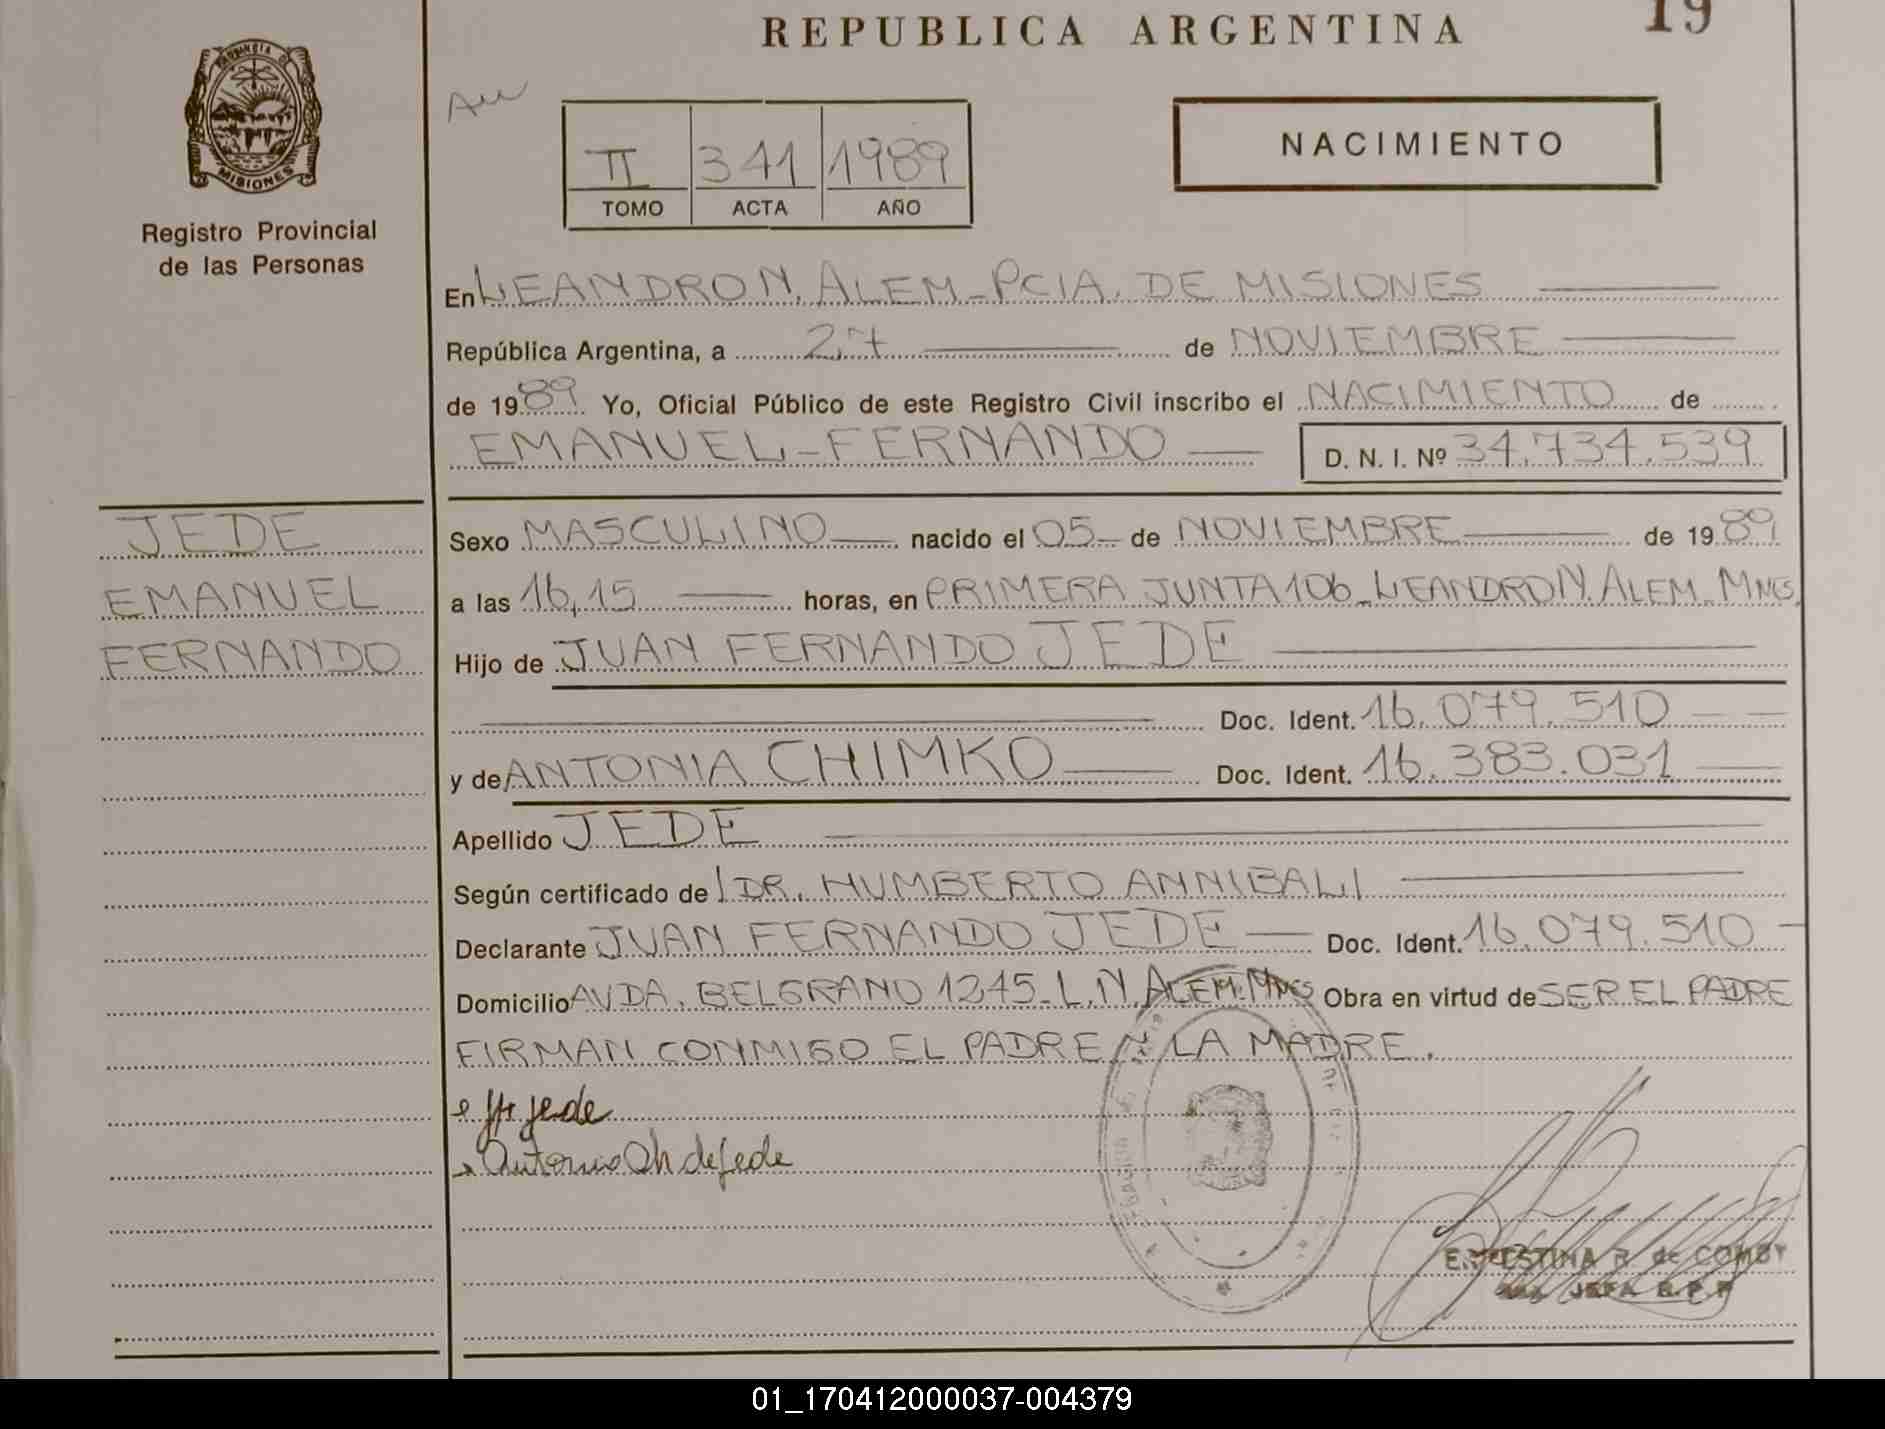 REPUBLICA ARGENTINA
19
PROVINCIA DE
MISIONES
Registro Provincial
de las Personas
II 341 1989
TOMO ACTA AÑO
NACIMIENTO
En LEANDRO N. ALEM_PCIA. DE MISIONES
República Argentina, a 27 de NOVIEMBRE
de 1989 Yo, Oficial Público de este Registro Civil inscribo el NACIMIENTO de
EMANUEL_FERNANDO D. N. I. Nº 34.734.539
JEDE
EMANUEL
FERNANDO
Sexo MASCULINO nacido el 05 de NOVIEMBRE de 1989
a las 16,15 horas, en PRIMERA JUNTA 106_LEANDRO N. ALEM_MNES.
Hijo de JUAN FERNANDO JEDE
Doc. Ident. 16.079.510
y de ANTONIA CHIMKO Doc. Ident. 16.383.031
Apellido JEDE
Según certificado de DR. HUMBERTO ANNIBALI
Declarante JUAN FERNANDO JEDE Doc. Ident. 16.079.510
Domicilio AVDA. BELGRANO 1245_L.N.ALEM_MNES Obra en virtud de SER EL PADRE
FIRMAN CONMIGO EL PADRE Y LA MADRE.
Jede
Antonia Ch de Jede
ERNESTINA R de
JEFA
01_170412000037-004379